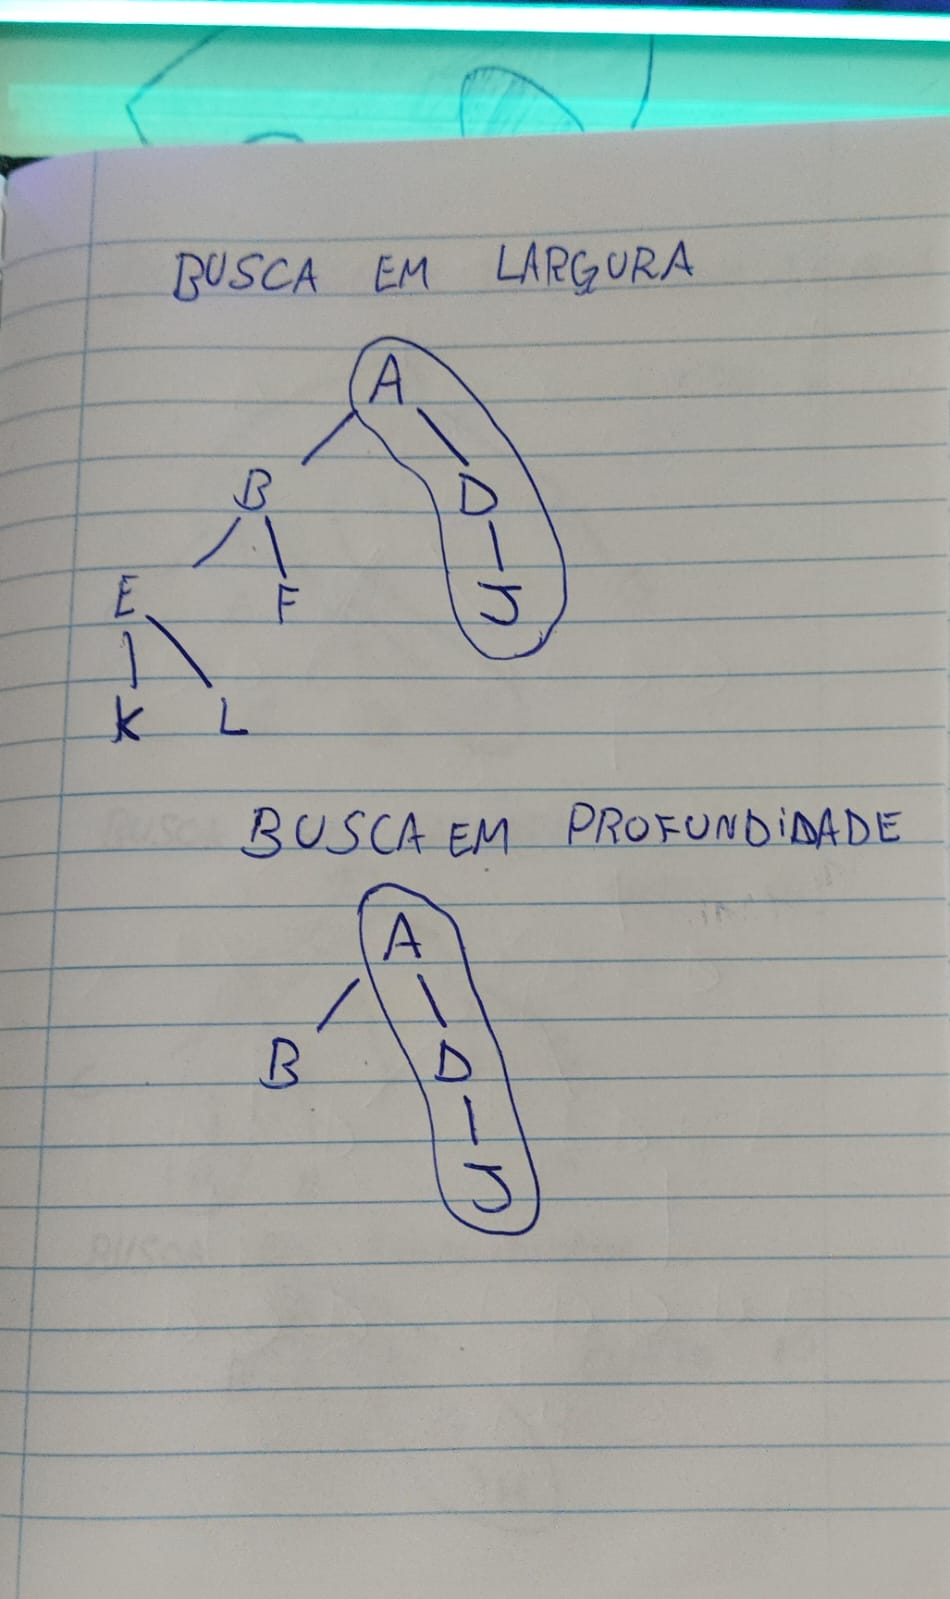 BUSCA EM LARGURA
A
B D
E F J
K L
BUSCA EM PROFUNDIDADE
A
B D
J